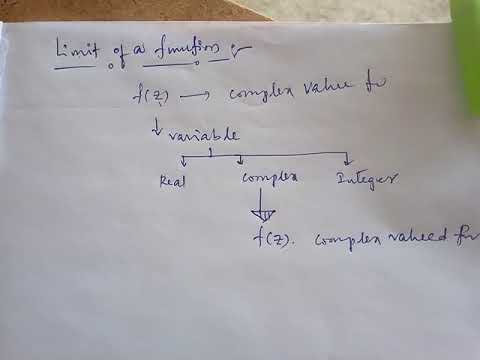 Limit of a function :-
f(z) → complex value fn
↓ variable
Real complex Integer
f(z). complex valued fn